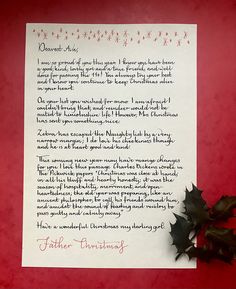 Dearest Ava,
I am so proud of you this year. I know you have been
a good kind, lovely girl and a true friend, and well
done for passing the 11+! You always try your best
and I know you continue to keep Christmas alive
in your heart.
On your list you wished for snow. I am afraid I
couldn't bring that, and reindeer would not be
suited to Lincolnshire life! However, Mrs Christmas
has sent you something nice.
Zebra has escaped the Naughty list by a very
narrow margin; I do love his cheekiness though
and he is at heart good and kind!
This coming new year may have many changes
for you. I love this passage Charles Dickens wrote in
The Pickwick paper "Christmas was close at hand,
in all his bluff and hearty honesty; it was the
season of hospitality, merriment, and open-
heartedness; the old year was preparing, like an
ancient philosopher, to call his friends around him,
and amidst the sound of feasting and revelry to
pass gently and calmly away."
Have a wonderful Christmas my darling girl.
Father Christmas